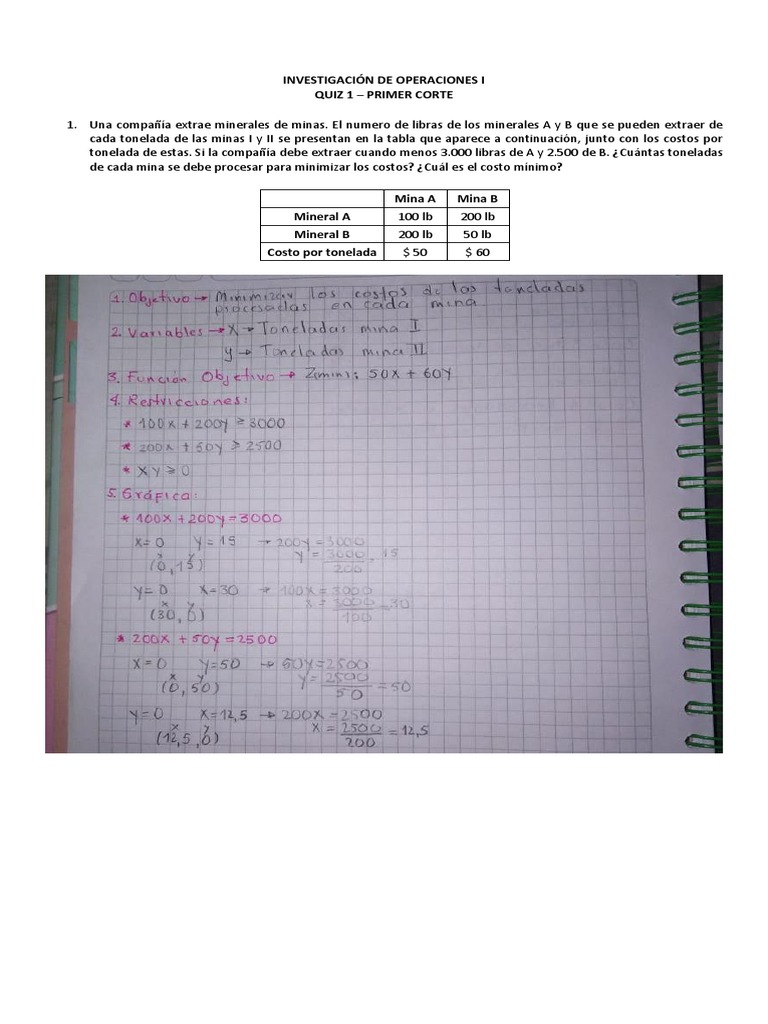 INVESTIGACIÓN DE OPERACIONES I
QUIZ 1 – PRIMER CORTE
1. Una compañía extrae minerales de minas. El numero de libras de los minerales A y B que se pueden extraer de
cada tonelada de las minas I y II se presentan en la tabla que aparece a continuación, junto con los costos por
tonelada de estas. Si la compañía debe extraer cuando menos 3.000 libras de A y 2.500 de B. ¿Cuántas toneladas
de cada mina se debe procesar para minimizar los costos? ¿Cuál es el costo mínimo?
Mina A Mina B
Mineral A 100 lb 200 lb
Mineral B 200 lb 50 lb
Costo por tonelada $ 50 $ 60
1. Objetivo → Minimizar los costos de las toneladas
procesadas en cada mina
2. Variables → X → Toneladas mina I
y → Toneladas mina II
3. Función Objetivo → Z(min): 50X + 60Y
4. Restricciones:
* 100x + 200y ≥ 3000
* 200x + 50y ≥ 2500
* XY ≥ 0
5. Gráfica:
* 100x + 200y = 3000
X=0 Y=15 → 200y = 3000
(0, 15) Y = 3000/200 = 15
Y=0 X=30 → 100x = 3000
(30, 0) X = 3000/100 = 30
* 200x + 50y = 2500
X=0 Y=50 → 50Y = 2500
(0, 50) Y = 2500/50 = 50
Y=0 X=12,5 → 200X = 2500
(12,5, 0) X = 2500/200 = 12,5